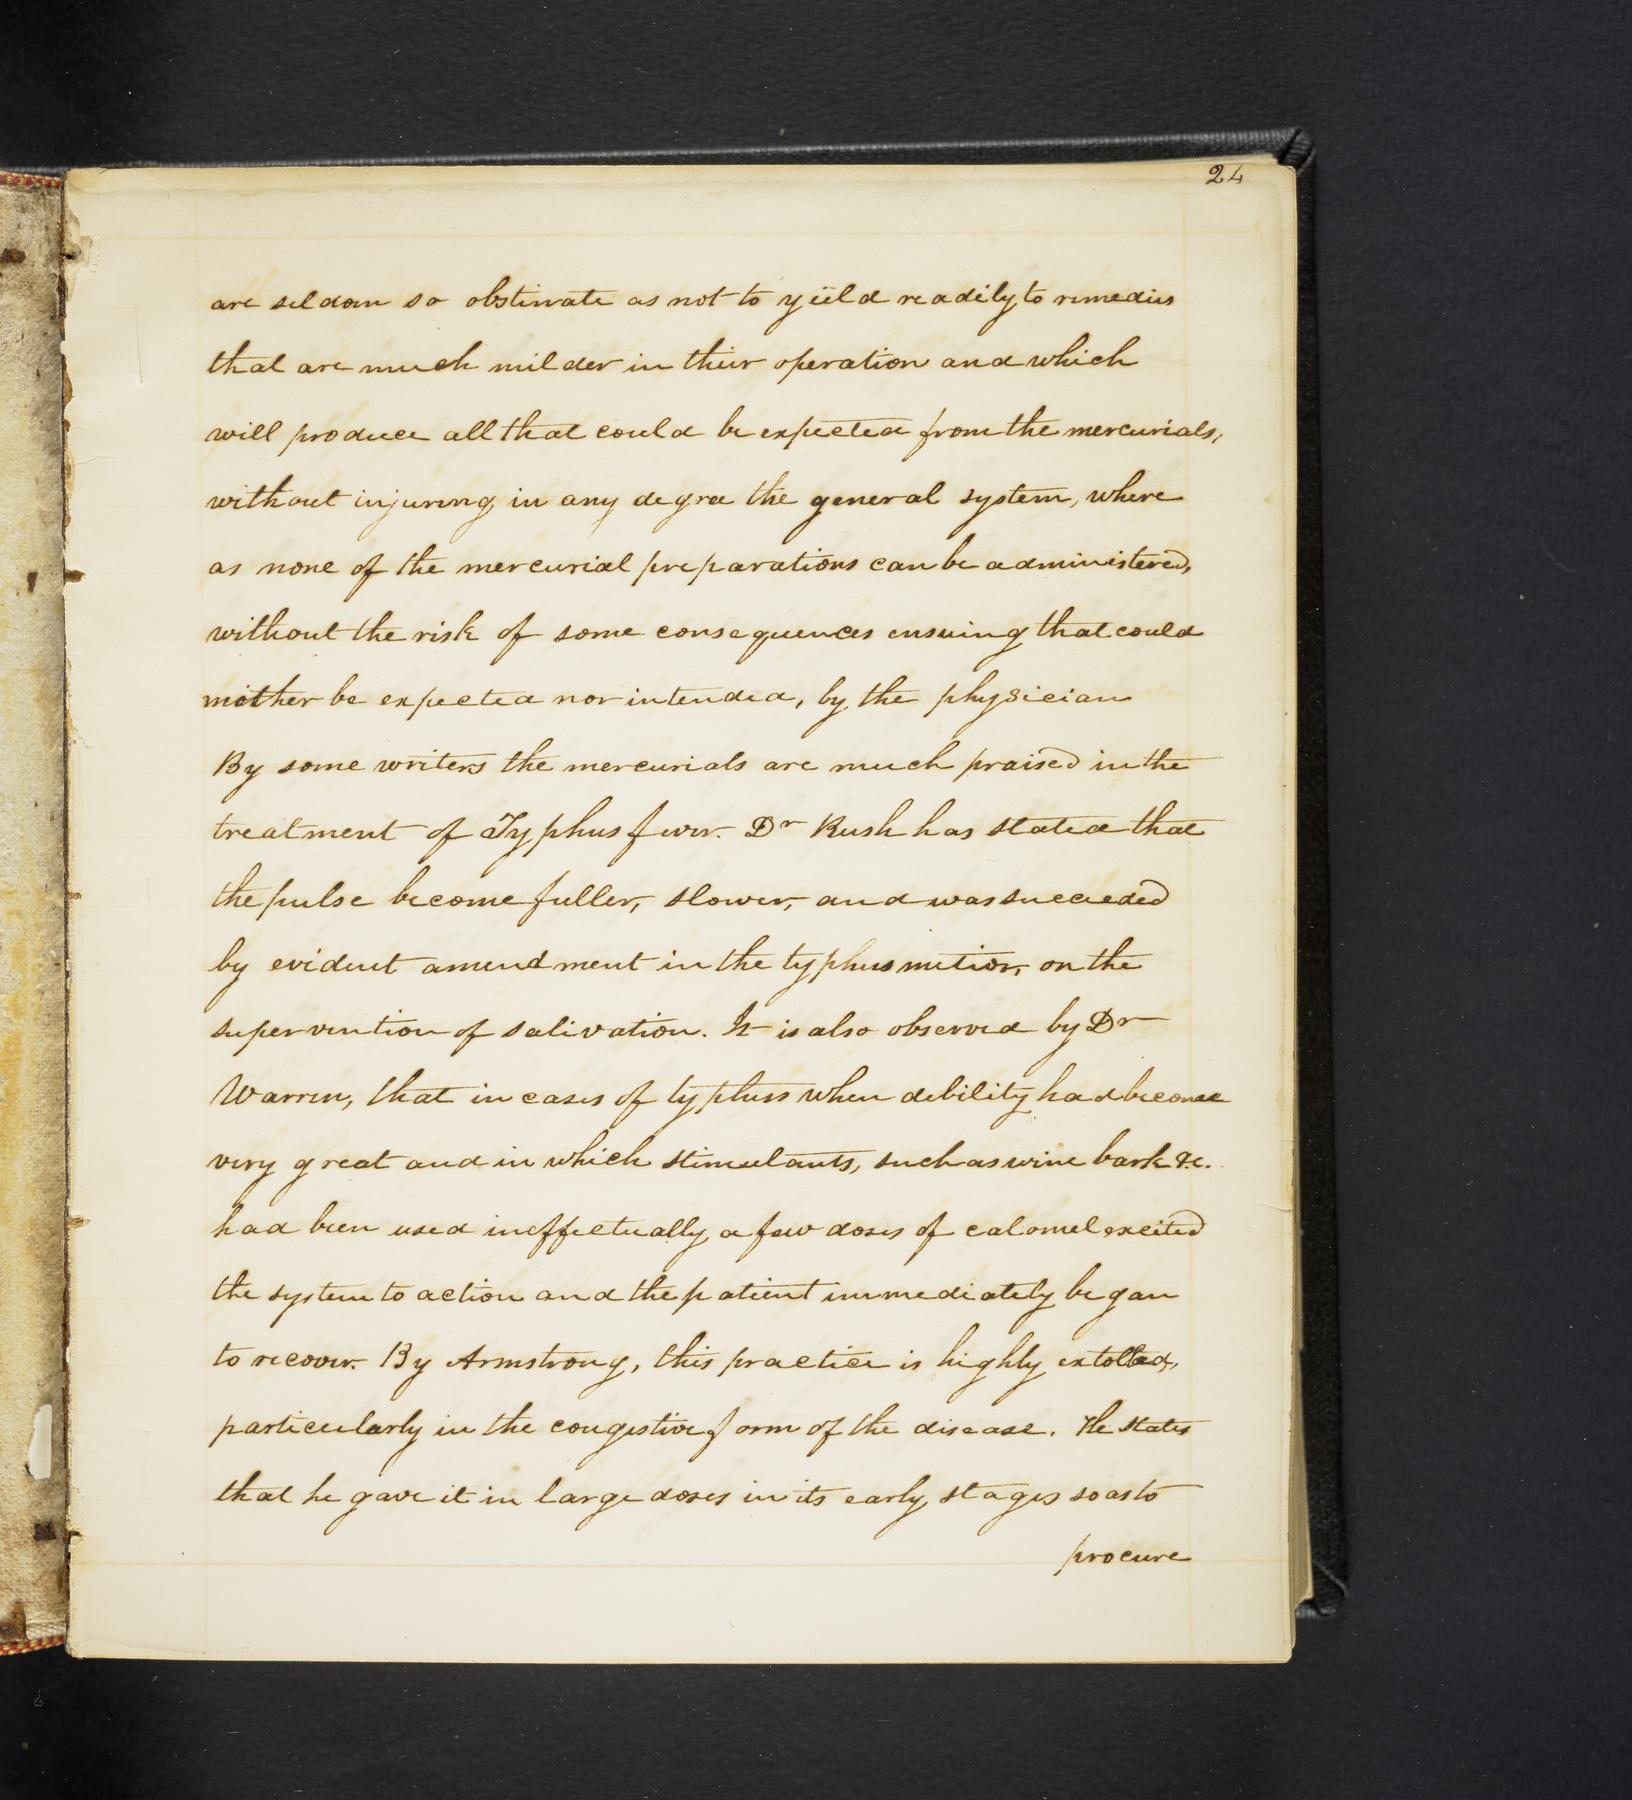 24
are seldom so obstinate as not to yield readily to remedies
that are much milder in their operation and which
will produce all that could be expected from the mercurials,
without injuring in any degree the general system, where
as none of the mercurial preparations can be administered,
without the risk of some consequences ensuing that could
neither be expected nor intended, by the physician
By some writers the mercurials are much praised in the
treatment of Typhus fever. Dr Rush has stated that
the pulse become fuller, slower, and was succeeded
by evident amendment in the typhus mitior, on the
supervention of salivation. It is also observed by Dr
Warren, that in cases of typhus when debility had become
very great and in which stimulants, such as wine bark &c.
had been used ineffectually, a few doses of calomel excited
the system to action and the patient immediately began
to recover. By Armstrong, this practice is highly extolled,
particularly in the congestive form of the disease. He states
that he gave it in large doses in its early stages so as to
procure